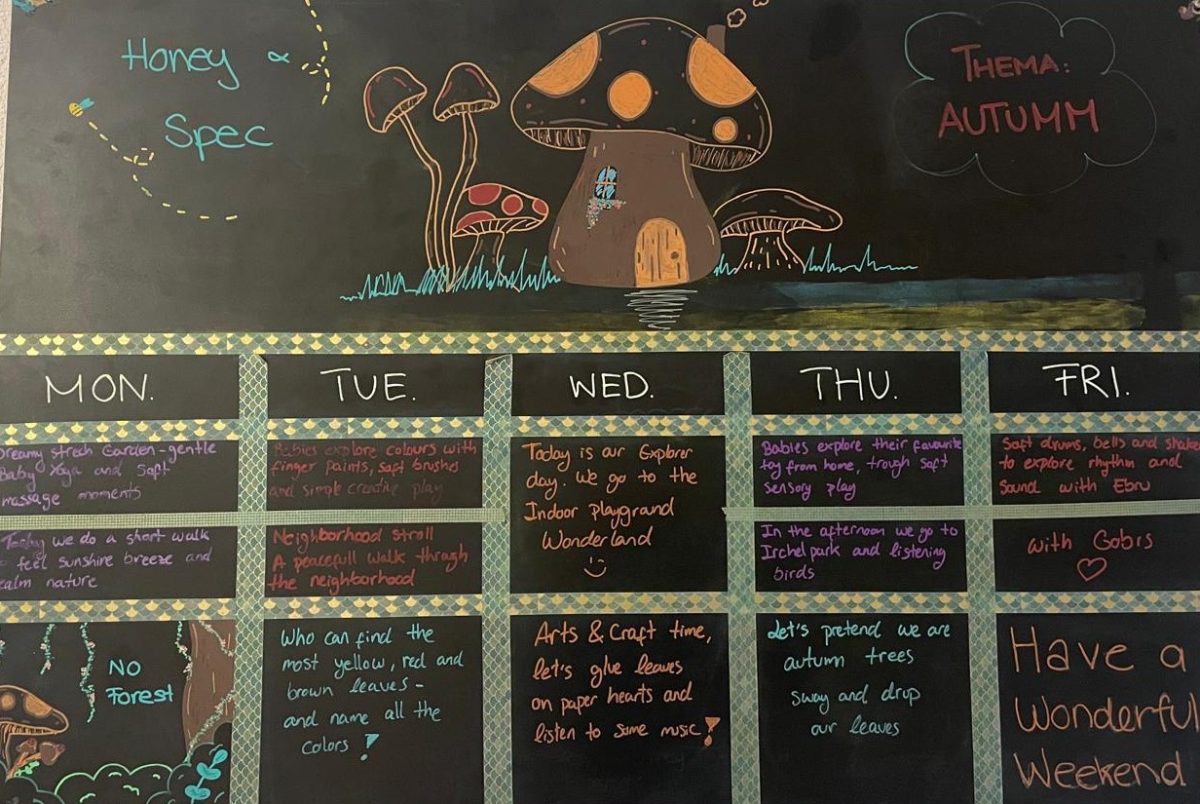 Honey &
Spec
THEMA:
AUTUMM
MON.
TUE.
WED.
THU.
FRI.
Dreamy strech Garden - gentle
Baby Yoga and Soft
massage moments
Babies explore colours with
finger paints, soft brushes
and simple creative play
Today is our Explorer
day. We go to the
Indoor playground
Wonderland
Babies explore their favourite
toy from home, trough soft
sensory play
Soft drums, bells and shake
to explore rhythm and
sound with Ebru
Today we do a short walk
feel sunshine breeze and
calm nature
Neighborhood stroll
A peacefull walk through
the neighborhood
In the afternoon we go to
Irchel park and listening
birds
with Gobis
NO
Forest
Who can find the
most yellow, red and
brown leaves -
and name all the
colors !
Arts & Craft time,
let's glue leaves
on paper hearts and
listen to some music!
Let's pretend we are
autumn trees
sway and drop
our leaves
Have a
Wonderful
Weekend